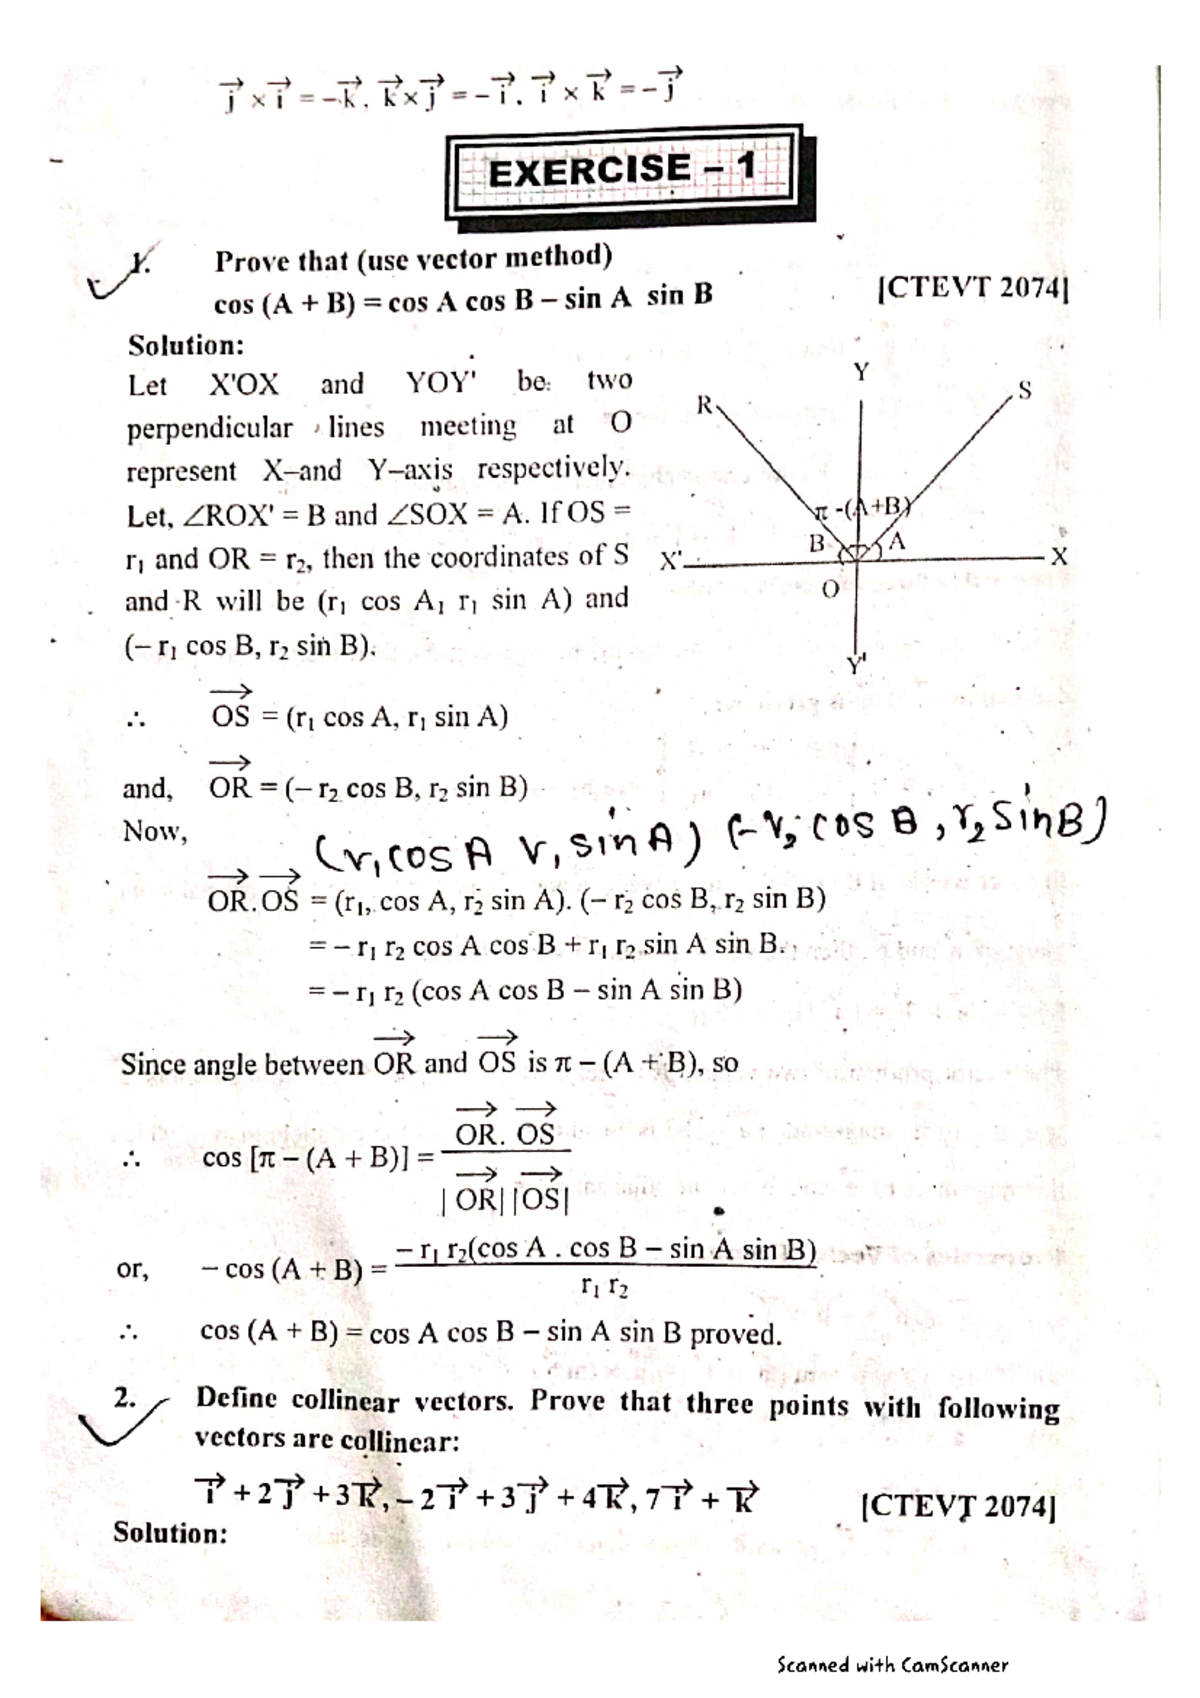 j⃗ × i⃗ = –k⃗, k⃗ × j⃗ = – i⃗, i⃗ × k⃗ = – j⃗
EXERCISE – 1
1. Prove that (use vector method)
cos (A + B) = cos A cos B – sin A sin B [CTEVT 2074]
Solution:
Let X'OX and YOY' be two
perpendicular lines meeting at O
represent X–and Y–axis respectively.
Let, ∠ROX' = B and ∠SOX = A. If OS =
r₁ and OR = r₂, then the coordinates of S
and R will be (r₁ cos A₁ r₁ sin A) and
(– r₁ cos B, r₂ sin B).
Y
R
S
π -(A+B)
B
A
X'
X
O
Y'
∴ O⃗S⃗ = (r₁ cos A, r₁ sin A)
and, O⃗R⃗ = (– r₂ cos B, r₂ sin B)
Now,
(r₁cosA r₁ sinA) (-r₂ cos B, r₂ sinB)
O⃗R⃗. O⃗S⃗ = (r₁, cos A, r₂ sin A). (– r₂ cos B, r₂ sin B)
= – r₁ r₂ cos A cos B + r₁ r₂ sin A sin B.
= – r₁ r₂ (cos A cos B – sin A sin B)
Since angle between O⃗R⃗ and O⃗S⃗ is π – (A + B), so
∴ cos [π – (A + B)] =
O⃗R⃗. O⃗S⃗
| O⃗R⃗| |O⃗S⃗|
or, – cos (A + B) =
– r₁ r₂(cos A . cos B – sin A sin B)
r₁ r₂
∴ cos (A + B) = cos A cos B – sin A sin B proved.
2. Define collinear vectors. Prove that three points with following
vectors are collinear:
i⃗ + 2j⃗ + 3k⃗, – 2i⃗ + 3j⃗ + 4k⃗, 7i⃗ + k⃗ [CTEVT 2074]
Solution:
Scanned with CamScanner